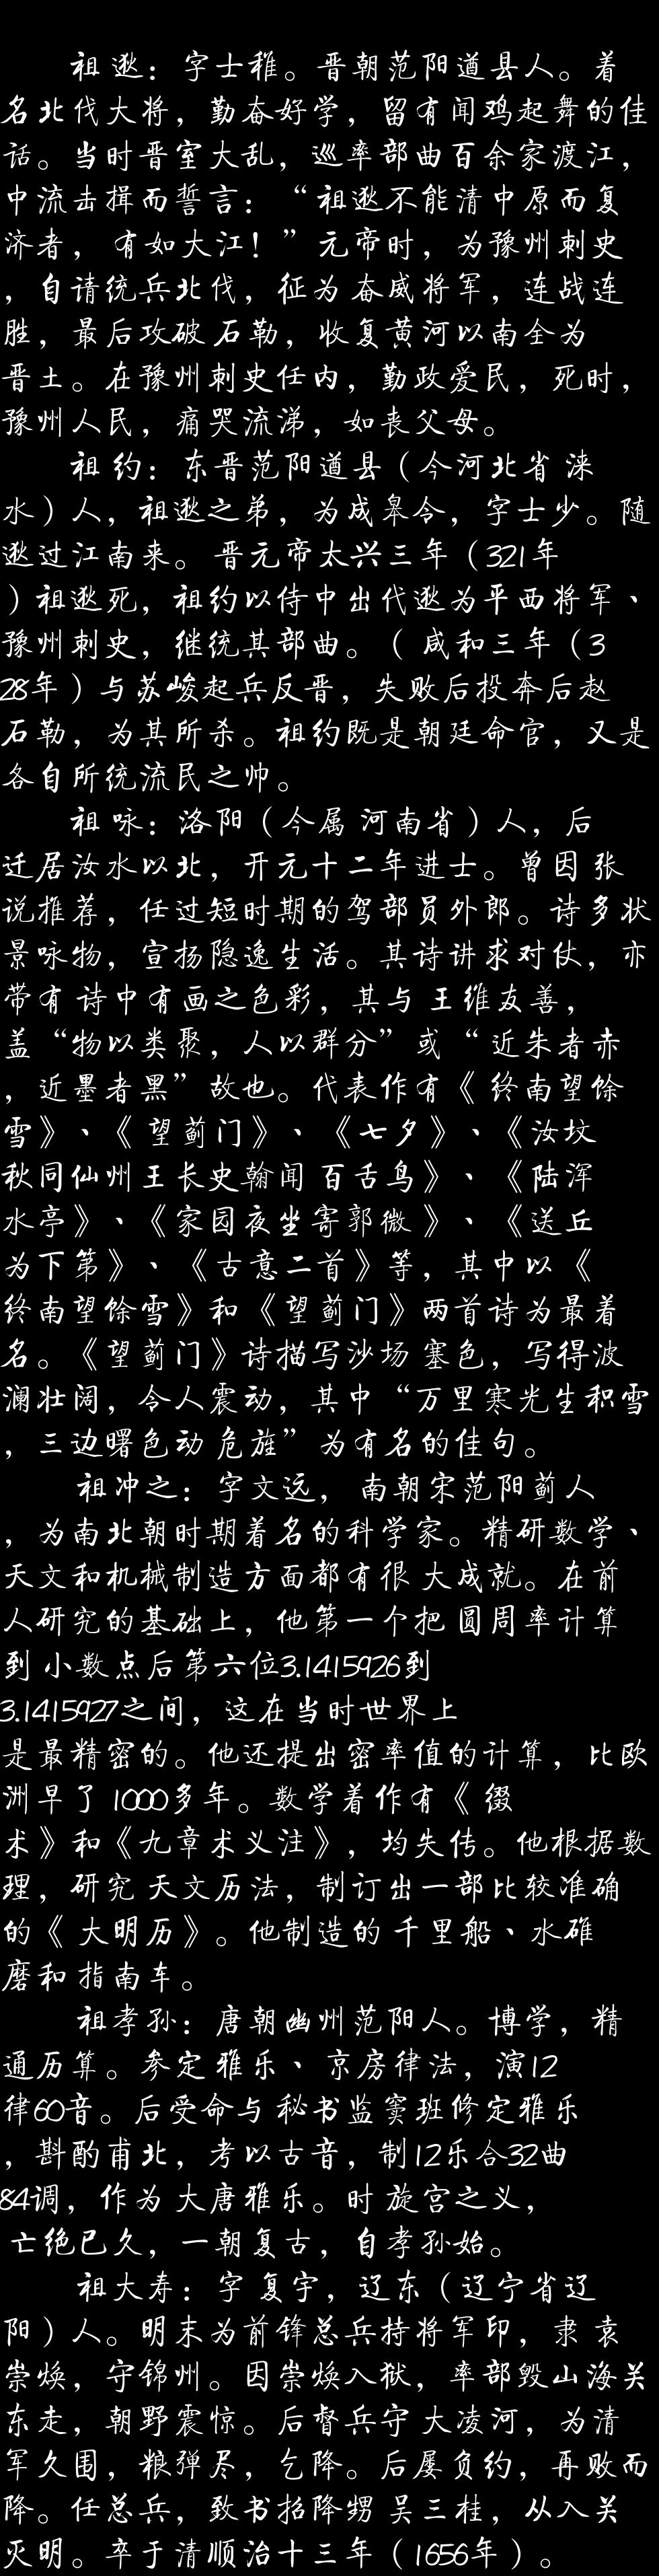 祖 逖：字士稚。晋朝范阳遒县人。着
名北伐大将，勤奋好学，留有闻鸡起舞的佳
话。当时晋室大乱，巡率部曲百余家渡江，
中流击揖而誓言：“祖逖不能清中原而复
济者，有如大江！”元帝时，为豫州刺史
，自请统兵北伐，征为 奋威将军，连战连
胜，最后攻破 石勒，收复黄河以南全为
晋土。在豫州刺史任内，勤政爱民，死时，
豫州人民，痛哭流涕，如丧父母。
祖 约：东晋范阳遒县（今河北省 涞
水）人，祖逖之弟，为成皋令，字士少。随
逖过江南来。晋元帝太兴三年（321年
）祖逖死，祖约以侍中出代逖为平西将军、
豫州刺史，继统其部曲。（ 咸和三年（3
28年）与苏峻起兵反晋，失败后投奔后赵
石勒，为其所杀。祖约既是朝廷命官，又是
各自所统流民之帅。
祖 咏：洛阳（今属 河南省）人，后
迁居汝水以北，开元十二年进士。曾因 张
说推荐，任过短时期的驾部员外郎。诗多状
景咏物，宣扬隐逸生活。其诗讲求对仗，亦
带有 诗中有画之色彩，其与 王维友善，
盖“物以类聚，人以群分”或“ 近朱者赤
，近墨者黑”故也。代表作有《 终南望馀
雪》、《 望蓟门》、 《七夕》、《汝坟
秋同仙州王长史翰闻 百舌鸟》、 《陆浑
水亭》、《家园夜坐寄郭微 》、 《送丘
为下第》、 《古意二首》等，其中以《
终南望馀雪》和《望蓟门》两首诗为最着
名。《望蓟门》诗描写沙场 塞色，写得波
澜壮阔，令人震动，其中“万里寒光生积雪
，三边曙色动 危旌”为有名的佳句。
祖冲之：字文远， 南朝宋范阳蓟人
，为南北朝时期着名的科学家。精研数学、
天文和机械制造方面都有很 大成就。在前
人研究的基础上，他第一个把 圆周率计算
到 小数点后第六位3.1415926到
3.1415927之间，这在当时世界上
是最精密的。他还提出密率值的计算，比欧
洲早了 1000多年。数学着作有《 缀
术》和《九章术义注》，均失传。他根据数
理，研究 天文历法，制订出一部比较准确
的《 大明历》。他制造的 千里船、水碓
磨和 指南车。
祖孝孙：唐朝幽州范阳人。博学，精
通历算。参定 雅乐、 京房律法，演12
律60音。后受命与 秘书监窦班修定雅乐
，斟酌甫北，考以古音，制12乐合32曲
84调，作为 大唐雅乐。时 旋宫之义，
亡绝已久，一朝复古，自孝孙始。
祖大寿：字 复宇，辽东（辽宁省辽
阳）人。明末为前锋总兵持将军印，隶 袁
崇焕，守锦州。因崇焕入狱，率部毁山海关
东走，朝野震惊。后督兵守 大凌河，为清
军久围，粮弹尽，乞降。后屡负约，再败而
降。任总兵，致书招降甥 吴三桂，从入关
灭明。卒于清顺治十三年（1656年）。